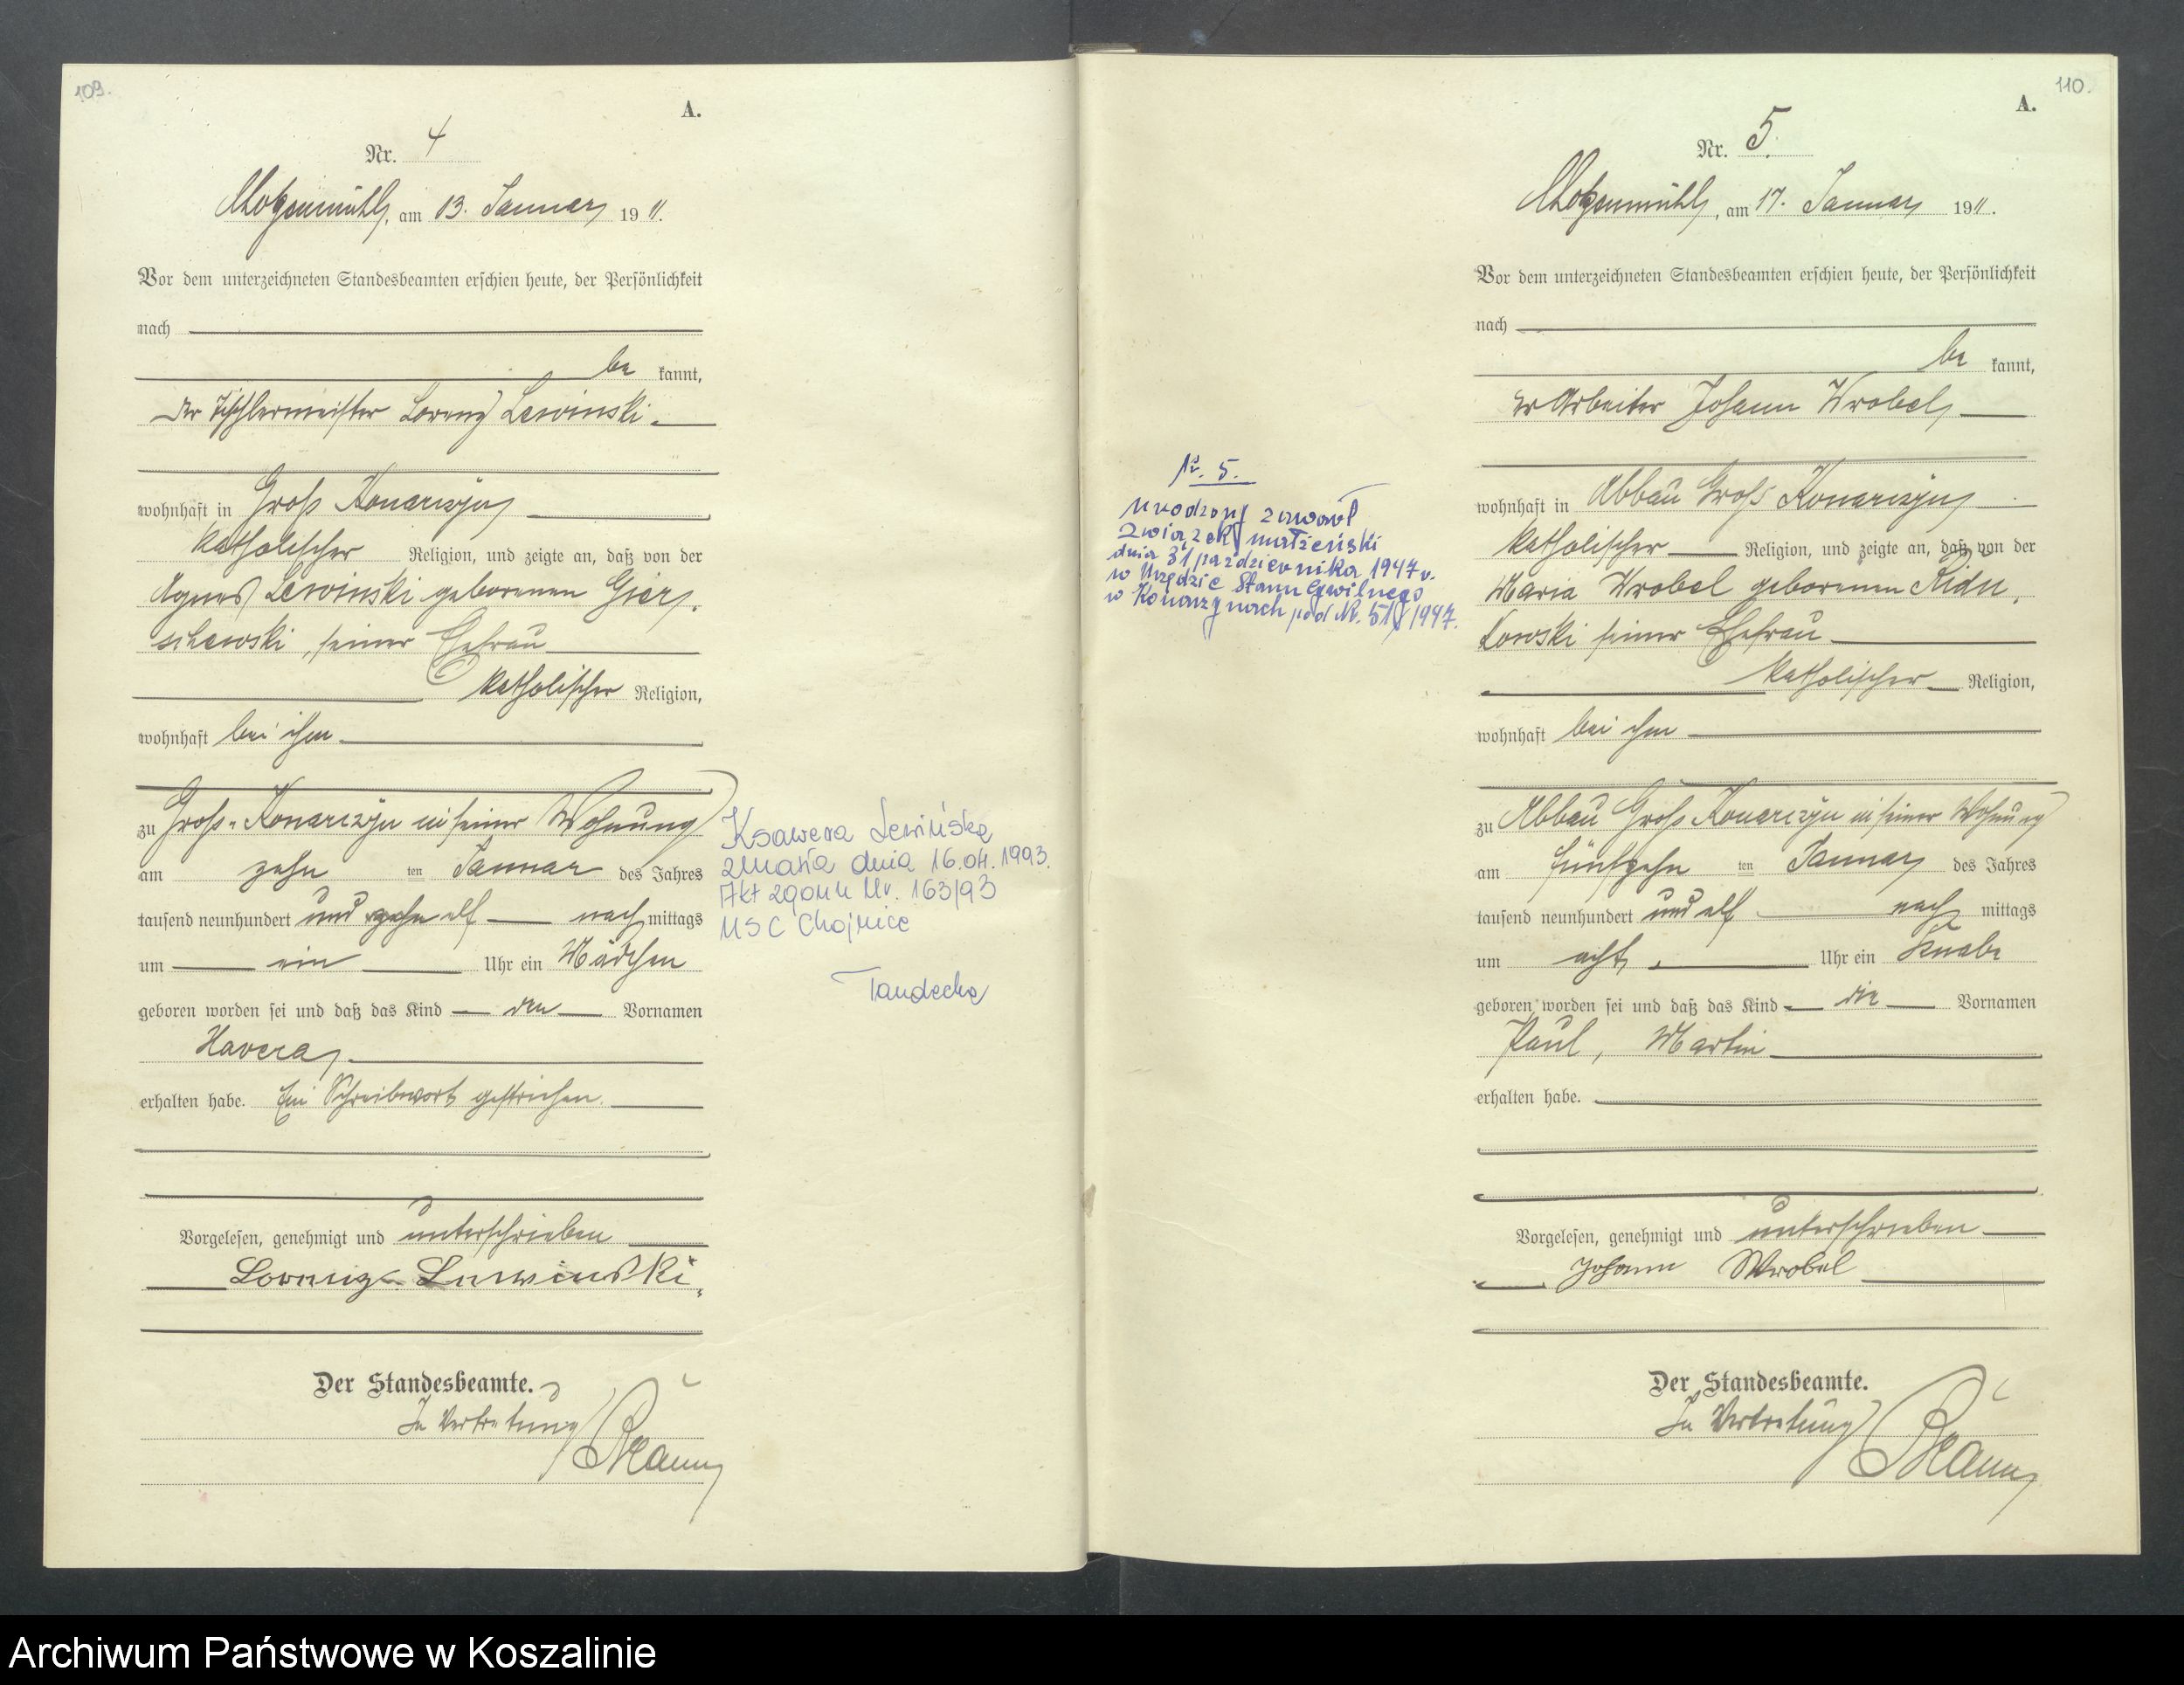 109.
A.
Nr. 4
am 13. Januar 1911.
Vor dem unterzeichneten Standesbeamten erschien heute, der Persönlichkeit
nach
be kannt,
der Tischlermeister Lorenz Lewinski
wohnhaft in Groß Konarczyn
katholischer Religion, und zeigte an, daß von der
Agnes Lewinski geborenen Gier
schewski, seiner Ehefrau
katholischer Religion,
wohnhaft bei ihm
zu Groß-Konarczyn in seiner Wohnung
am zehn ten Januar des Jahres
tausend neunhundert und zehn elf nach mittags
um ein Uhr ein Mädchen
geboren worden sei und daß das Kind den Vornamen
Xavera
erhalten habe. Ein Schreibwort gestrichen.
Vorgelesen, genehmigt und unterschrieben
Lorenz Lewinski
Der Standesbeamte.
In Vertretung
Ksawera Lewińska
zmarła dnia 16.04.1993.
Akt zgonu Nr. 163/93
USC Chojnice
110.
A.
Nr. 5.
am 17. Januar 1911.
Vor dem unterzeichneten Standesbeamten erschien heute, der Persönlichkeit
nach
be kannt,
der Arbeiter Johann Wrobel
wohnhaft in Abbau Groß Konarczyn
katholischer Religion, und zeigte an, daß von der
Maria Wrobel geborenen
seiner Ehefrau
katholischer Religion,
wohnhaft bei ihm
zu Abbau Groß Konarczyn in seiner Wohnung
am fünfzehn ten Januar des Jahres
tausend neunhundert und elf nach mittags
um acht Uhr ein Knabe
geboren worden sei und daß das Kind die Vornamen
Paul, Martin
erhalten habe.
Vorgelesen, genehmigt und unterschrieben
Johann Wrobel
Der Standesbeamte.
In Vertretung
Nr. 5.
Urodzony zawarł
związek małżeński
dnia 31 października 1947 r.
w Urzędzie Stanu Cywilnego
w Konarzynach pod Nr. 51/1947.
Archiwum Państwowe w Koszalinie